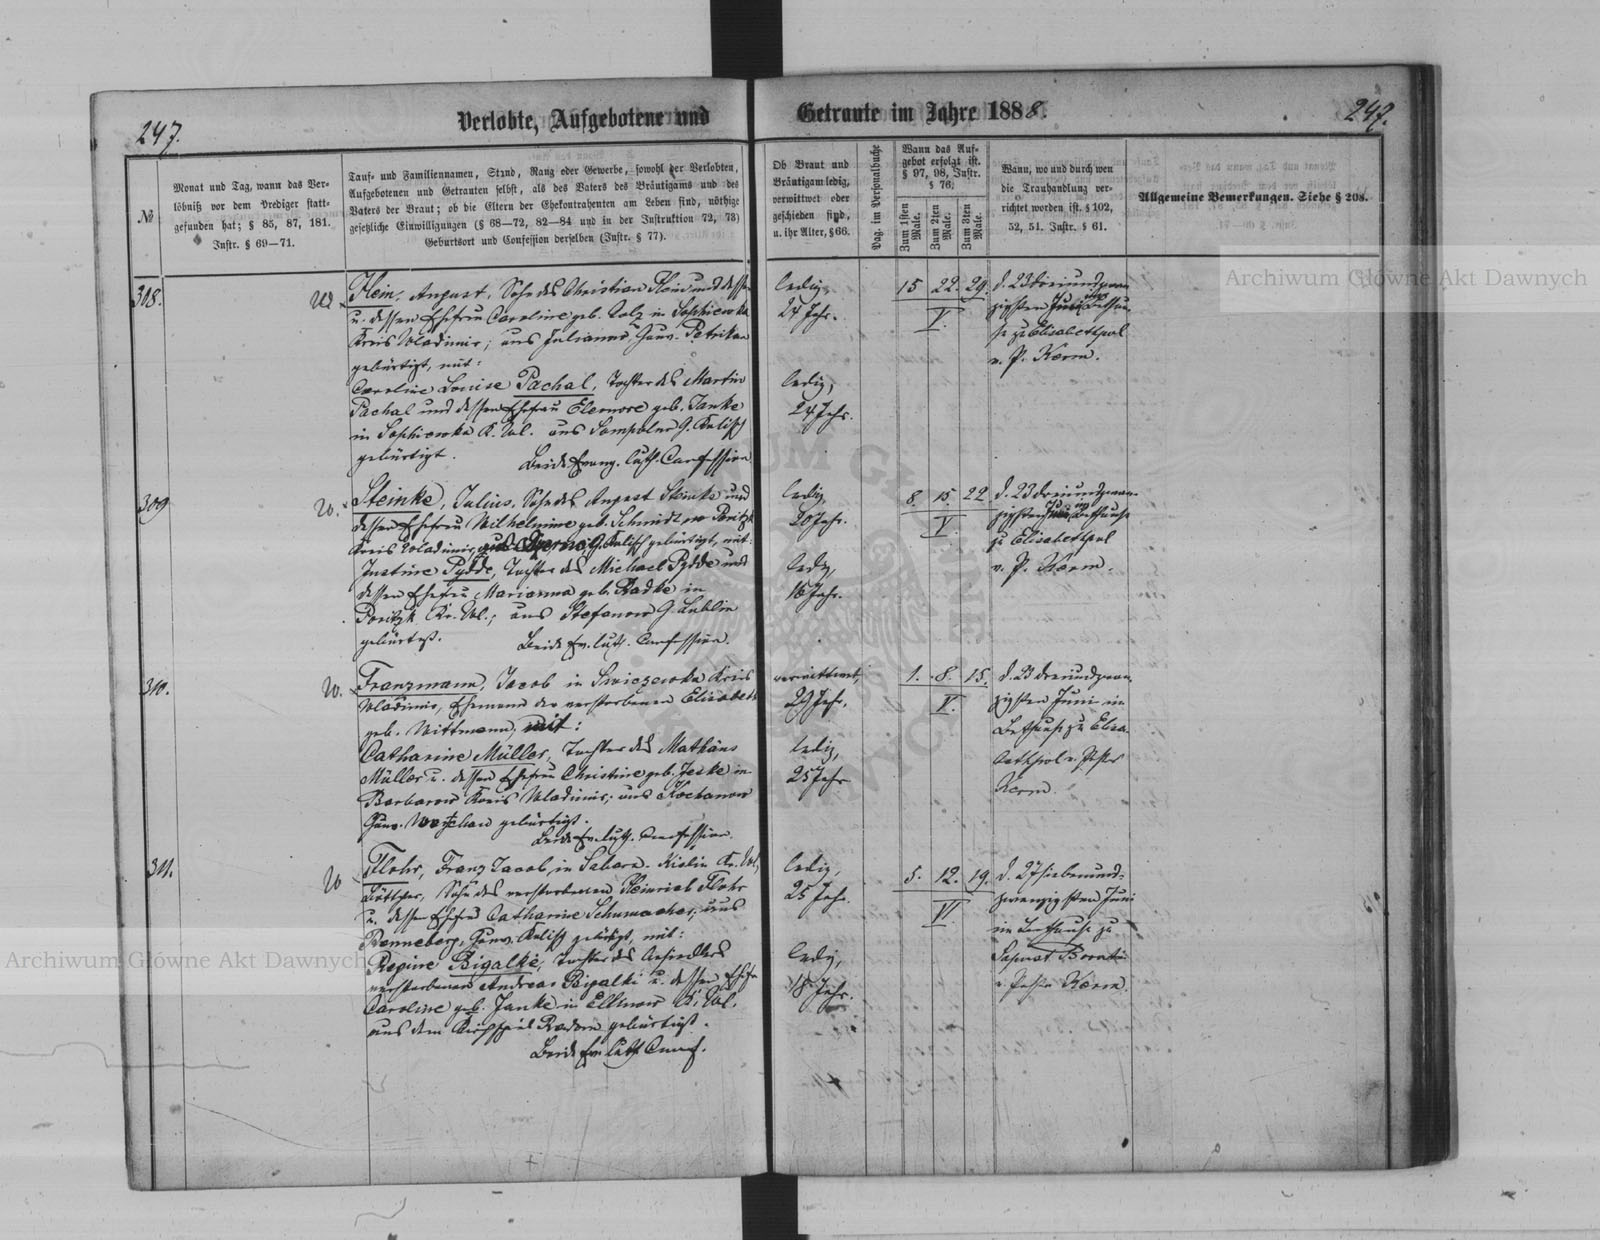 247.
Verlobte, Aufgebotene und
Getraute im Jahre 1888.
247.
№
Monat und Tag, wann das Ver-
löbniß vor dem Prediger statt-
gefunden hat; § 85, 87, 181.
Instr. § 69—71.
Tauf- und Familiennamen, Stand, Rang oder Gewerbe, sowohl der Verlobten,
Aufgebotenen und Getrauten selbst, als des Vaters des Bräutigams und des
Vaters der Braut; ob die Eltern der Ehekontrahenten am Leben sind, nöthige
gesetzliche Einwilligungen (§ 68—72, 82—84 und in der Instruktion 72, 73)
Geburtsort und Confession derselben (Instr. § 77).
Ob Braut und
Bräutigam ledig,
verwittwet oder
geschieden sind,
u. ihr Alter, § 66.
Pag. im Personalbuche
Wann das Auf-
gebot erfolgt ist.
§ 97, 98, Instr.
§ 76.
Zum 1sten Male.
Zum 2ten Male.
Zum 3ten Male.
Wann, wo und durch wen
die Trauhandlung ver-
richtet worden ist. § 102,
52, 51. Instr. § 61.
Allgemeine Bemerkungen. Siehe § 208.
308.
Hein, August, Sohn des Christian Hein und dessen
u. dessen Ehefrau Caroline geb. Volz in Sophiewka
Kreis Wladimir; aus Julianow Gouv. Petrikau
gebürtigt, mit:
Caroline Louise Pachal, Tochter des Martin
Pachal und dessen Ehefrau Eleonore geb. Janke
in Sophiewka K. Wl. aus Sompolno G. Kalisch
gebürtigt.
Beide Evang. luth. Confession
ledig,
24 Jhr.
ledig,
24 Jhr.
15 22. 29.
V.
d. 23 dreiundzwan
zigsten Juni im Bethau-
se zu Elisabethpol
v. P. Kerm.
309
Steinke, Julius, Sohn des August Steinke und
dessen Ehefrau Wilhelmine geb. Schmidt in Poritzk
Kreis Wladimir, aus G. Kalisch gebürtigt, mit:
Justine Pydde, Tochter des Michael Pydde und
dessen Ehefrau Marianna geb. Radke in
Poritzk Kr. Wl.; aus Stefanow G. Lublin
gebürtigt.
Beide Ev. luth. Confession.
ledig,
20 Jahr.
ledig,
18 Jahr.
8. 15. 22
V.
d. 23 dreiundzwan-
zigsten Juni im Bethause
zu Elisabethpol
v. P. Kerm.
310.
W.
Franzmann, Jacob in Swiczewka Kreis
Wladimir, Ehemann der verstorbenen Elisabeth
geb. Wittmann, mit:
Catharine Müller, Tochter des Mathäus
Müller u. dessen Ehefrau Christine geb. Jeske in
Barbarow Kreis Wladimir; aus Kochanow
Gouv. Warschau gebürtigt.
Beide Ev. luth. Confession.
verwittwet,
29 Jahr.
ledig,
25 Jahr
1. 8. 15.
V.
d. 23 dreiundzwan
zigsten Juni im
Bethause zu Elisa-
bethpol v. Pastor
Kerm.
311.
W
Flohr, Franz Jacob, in Kr. Wl,
Böttcher, Sohn des verstorbenen Heinrich Flohr
u. dessen Ehefrau Catharine Schumacher, aus
Gouv. Kalisch gebürtigt, mit:
Regine Bigalke, Tochter des Ansiedlers
verstorbenen Andreas Bigalki u. dessen Ehefr.
Caroline geb. Janke in K. Wl.
aus dem Kirchspiel Radom gebürtigt.
Beide Ev. luth Conf.
ledig,
25 Jahr.
ledig,
18 Jahr.
5. 12. 19.
VI
d. 27 siebenund-
zwanzigsten Juni
im Bethause zu
v. Pastor Kerm.
Archiwum Główne Akt Dawnych
Archiwum Główne Akt Dawnych